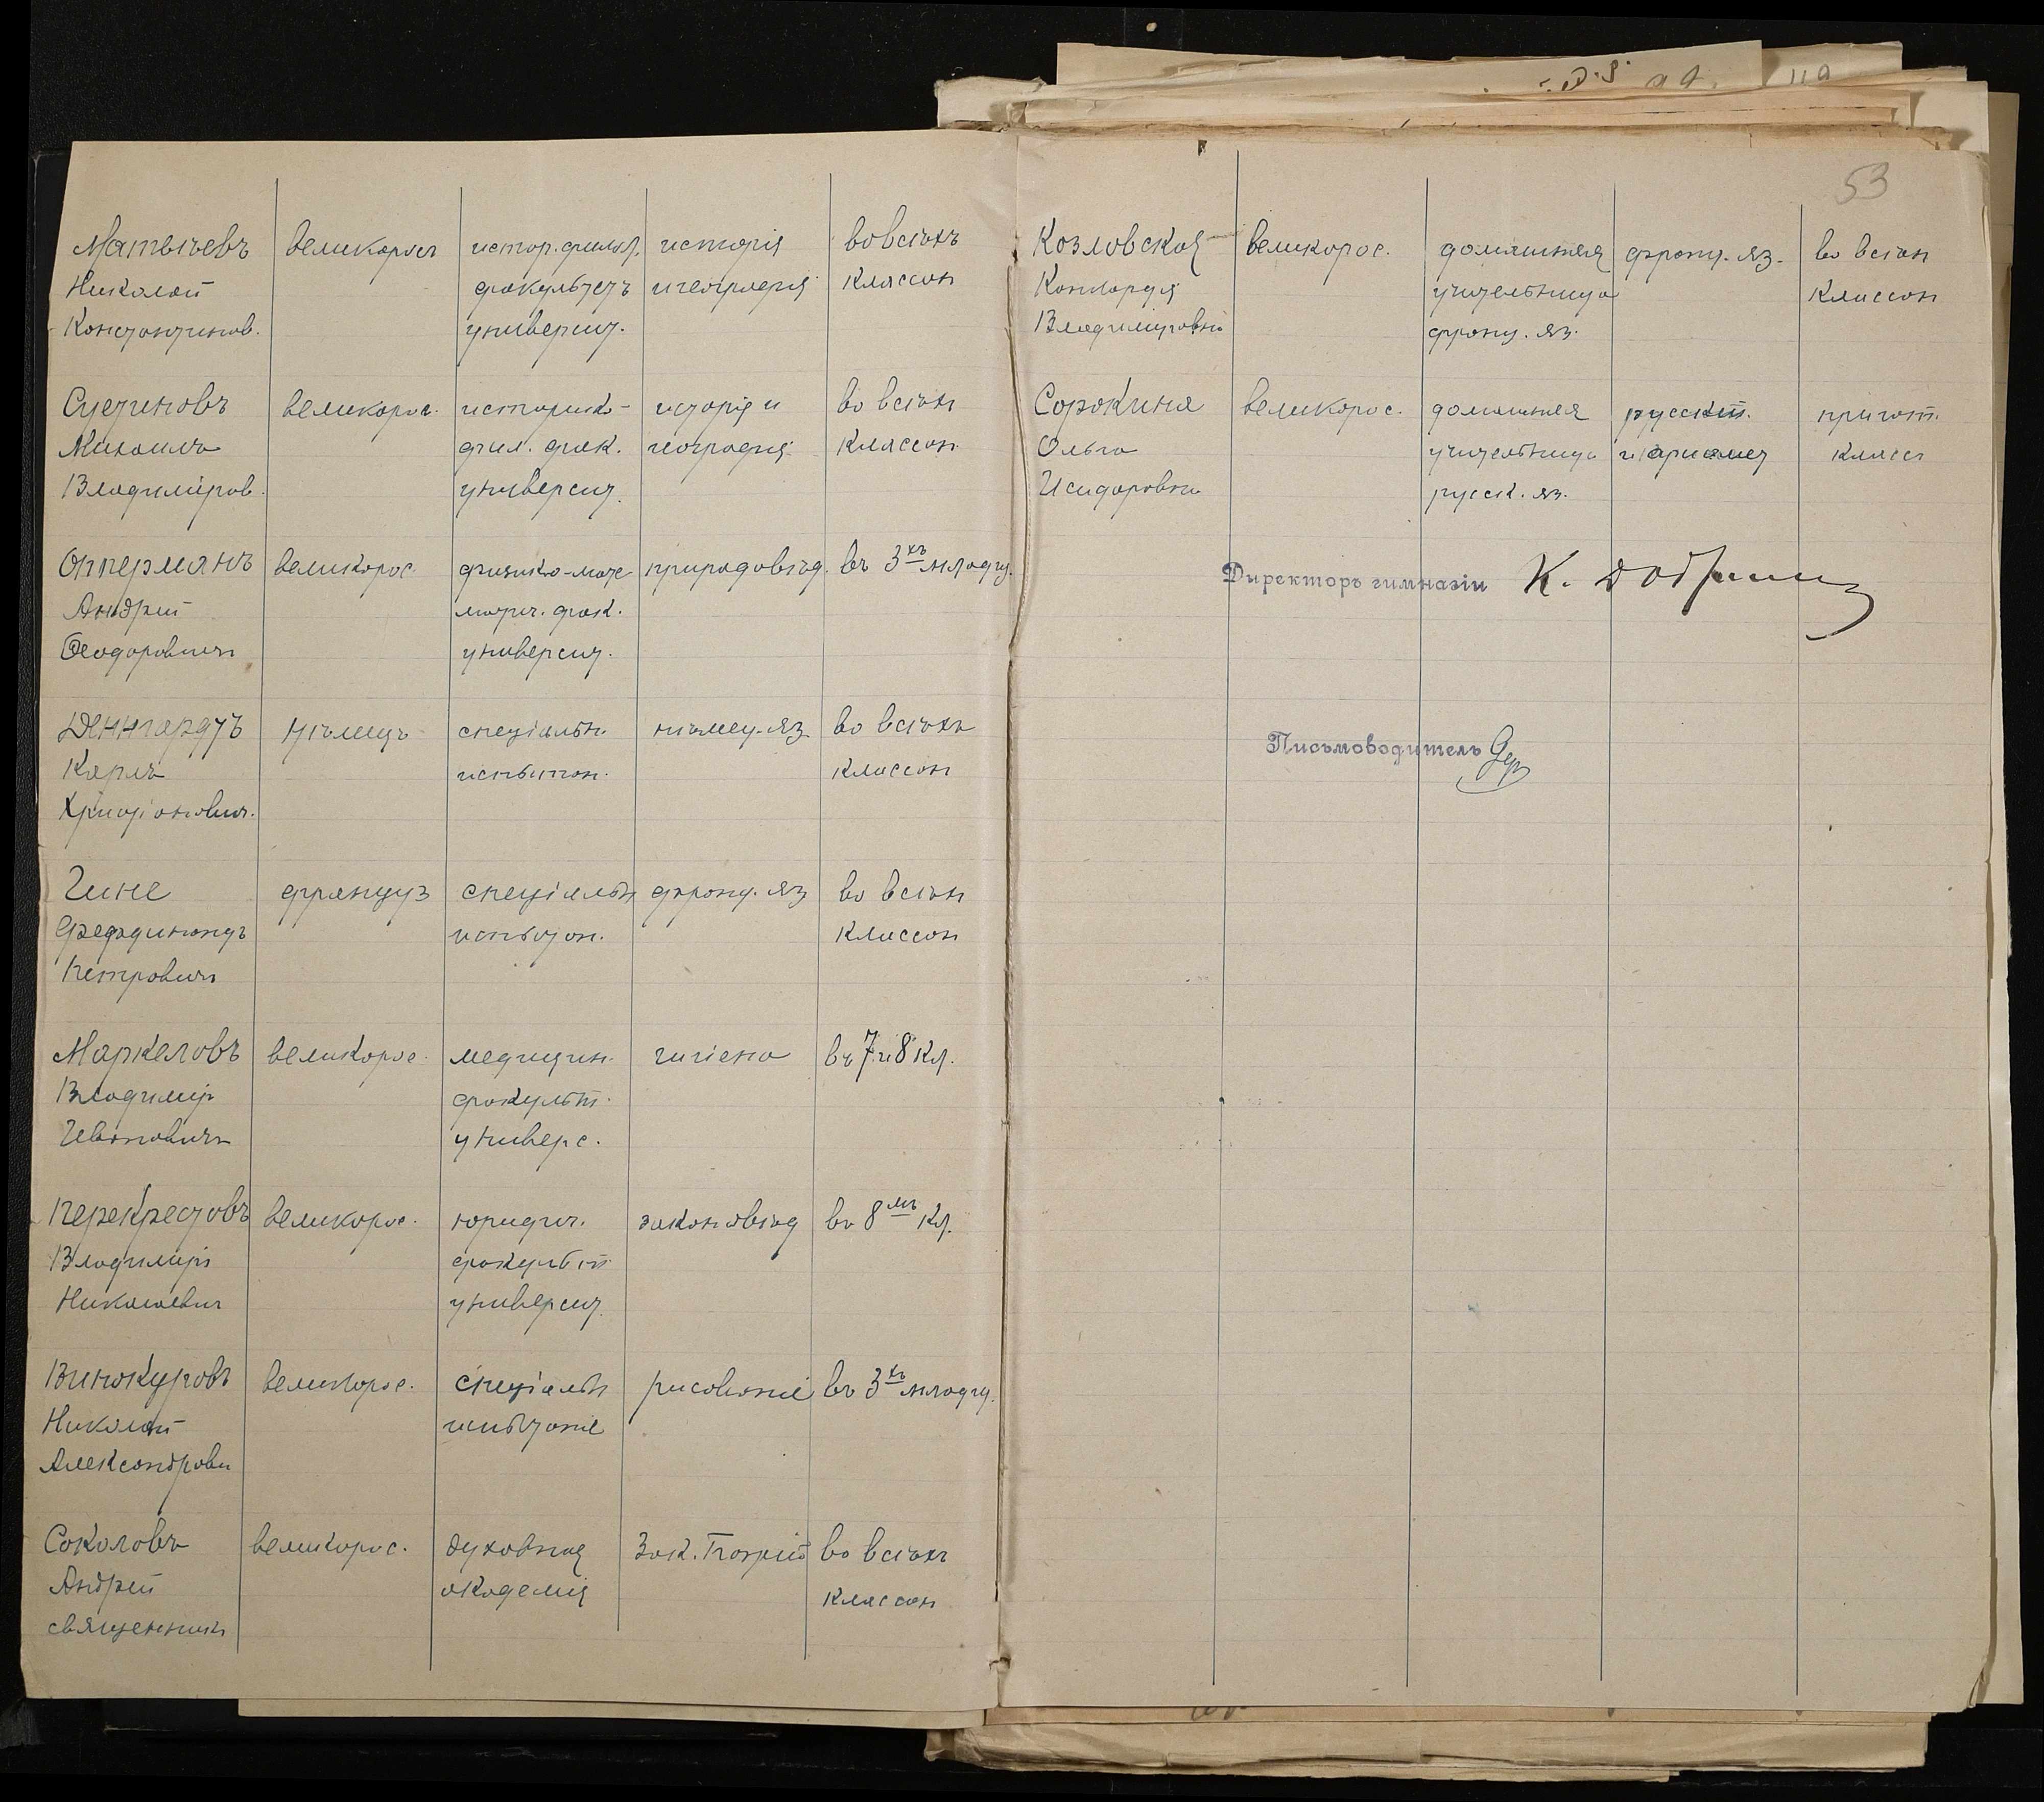 Матвѣевъ великоросъ истор. филол. исторія во всѣхъ
Николай факультетъ и географія классах
Константинов. университ.
Сустиновъ великорос. историко- исторія и во всѣхъ
Михаилъ фил. фак. географія классах
Владиміров. университ.
Опперманъ великорос. физико-мате природовѣд. въ 3хъ младш.
Андрей матич. фак.
Ѳеодоровичъ университ.
Деннгардтъ нѣмецъ спеціальн. нѣмец. яз. во всѣхъ
Карлъ испытан. классах
Христіановичъ.
Гине француз спеціальн франц. яз во всѣхъ
Фердинандъ испытан. классах
Петровичъ
Маркеловъ великорос. медицин. гигіена въ 7 и 8 кл.
Владимір факульт.
Ивановичъ универс.
Перекрестовъ великорос. юридич. законовѣд въ 8мъ кл.
Владиміръ факульт
Николаевич университ.
Винокуровъ великорос. спеціальн рисованіе въ 3хъ младш.
Николай испытаніе
Александрови
Соколовъ великорос. духовная Зак. Божій во всѣхъ
Андрей академія классах
священникъ
53
Козловская великорос. домашняя франц. яз. во всѣхъ
Конкордія учительница классах
Владиміровна франц. яз.
Сорокина великорос. домашняя русскій. пригот.
Ольга учительница и арифмет класс
Исидоровна русск. яз.
Директоръ гимназіи К.
Письмоводитель